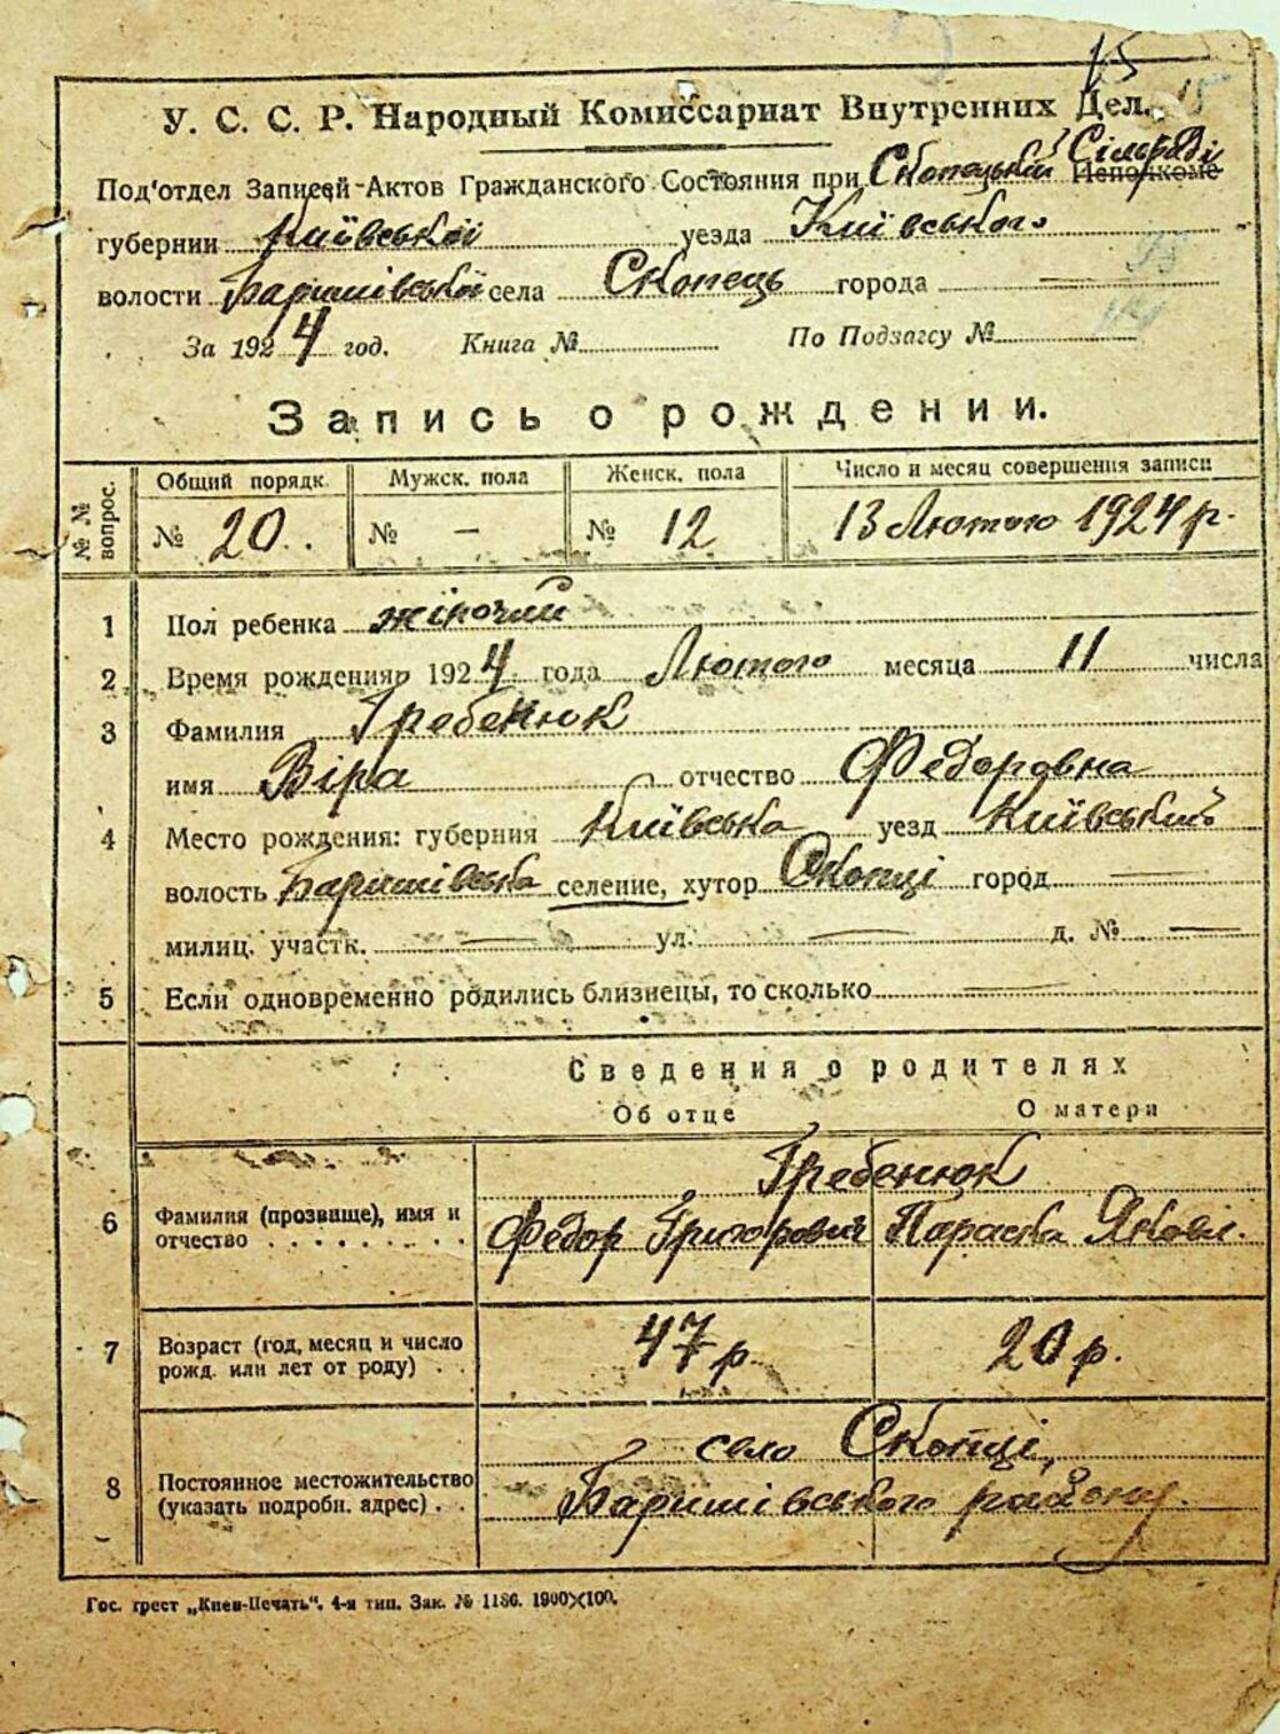 15
15
У. С. С. Р. Народный Комиссариат Внутренних Дел.
Под'отдел Записей-Актов Гражданского Состояния при Скопецькій Сільраді Исполкоме
губернии Київської уезда Київського
волости Баришівської села Скопець города —
За 1924 год. Книга № По Подзагсу №
Запись о рождении.
№ № вопрос.
Общий порядк. Мужск. пола Женск. пола Число и месяц совершения записи
№ 20. № – № 12 13 Лютого 1924 р.
1 Пол ребенка жіночий
2 Время рождения 1924 года Лютого месяца 11 числа
3 Фамилия Гребенюк
имя Віра отчество Федоровна
4 Место рождения: губерния Київська уезд Київський
волость Баришівська селение, хутор Скопці город —
милиц. участк. — ул. — д. № —
5 Если одновременно родились близнецы, то сколько —
Сведения о родителях
Об отце О матери
Гребенюк
6 Фамилия (прозвище), имя и отчество . . . . . . . . Федор Григорович Параска Яковл.
7 Возраст (год, месяц и число рожд. или лет от роду) . . 47 р. 20 р.
село Скопці,
8 Постоянное местожительство (указать подробн. адрес) . . Баришівського району.
Гос. трест „Киев-Печать". 4-я тип. Зак. № 1186. 1900×100.